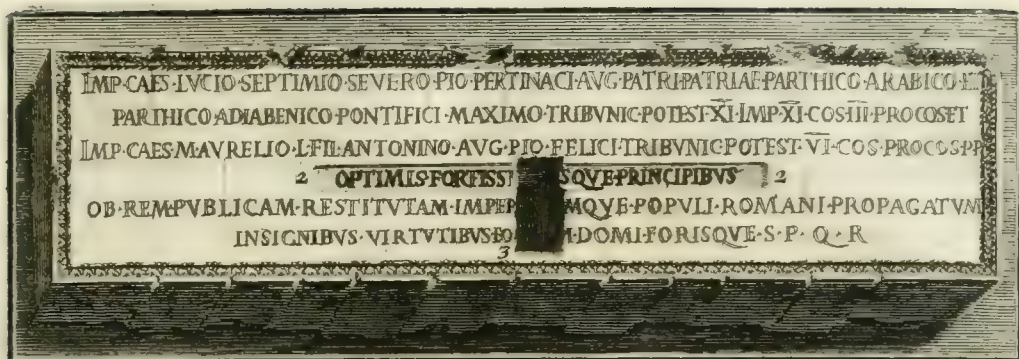 IMP·CAES·LVCIO·SEPTIMIO·SEVERO·PIO·PERTINACI·AVG·PATRI·PATRIAE·PARTHICO·ARABICO·ET
PARTHICO·ADIABENICO·PONTIFICI·MAXIMO·TRIBVNIC·POTEST·X̅I̅·IMP·X̅I̅·COS·I̅I̅I̅·PROCOSET
IMP·CAES·M·AVRELIO·L·FIL·ANTONINO·AVG·PIO·FELICI·TRIBVNIC·POTEST·V̅I̅·COS·PROCOS·PP
2 OPTIMIS·FORTISSI SQVE·PRINCIPIBVS 2
OB·REM·PVBLICAM·RESTITVTAM·IMPER MQVE·POPVLI·ROMANI·PROPAGATVM
INSIGNIBVS·VIRTVTIBVS·EO M·DOMI·FORISQVE·S·P·Q·R
3